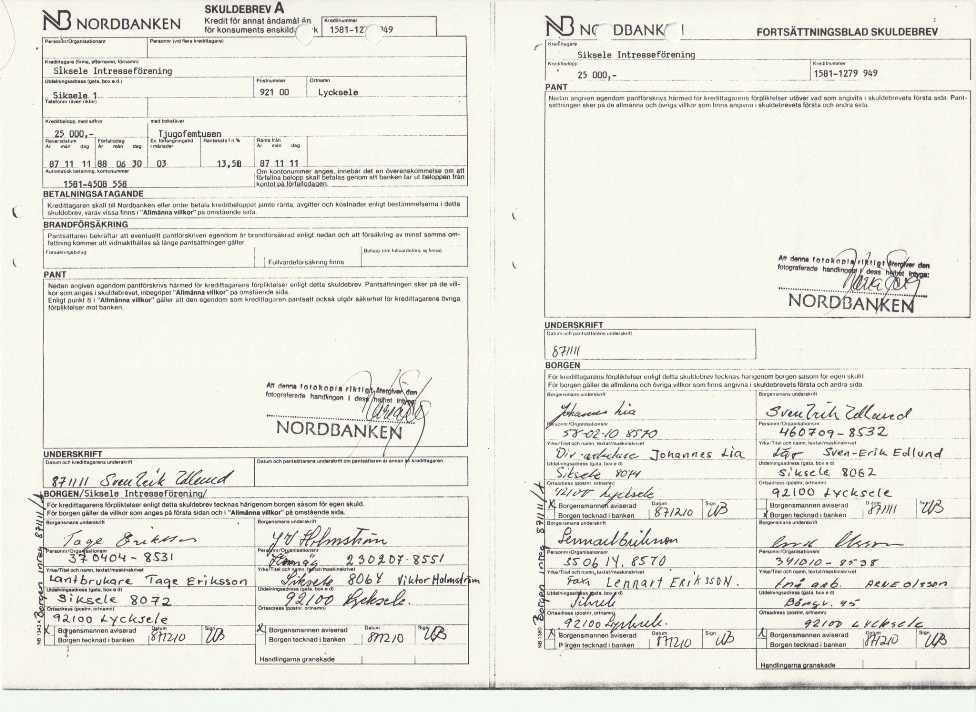 NORDBANKEN
SKULDEBREV A
Kredit för annat ändamål än
för konsuments enskilda
Kreditnummer
1581-1279 949
Personnr/Organisationsnr
Personnr (vid flera kredittagare)
Kredittagare (firma, efternamn, förnamn)
Siksele Intresseförening
Utdelningsadress (gata, box e.d.)
Postnummer
Ortnamn
Siksele 1
921 00
Lycksele
Telefonnr (även riktnr)
Kreditbelopp, med siffror
med bokstäver
25 000,-
Tjugofemtusen
Reversdatum
År mån dag
Förfallodag
År mån dag
Räntesats f n %
Ränta från
År mån dag
87 11 11
88 06 30
03
13,50
87 11 11
Automatisk betalning, kontonummer
1581-4508 558
Om kontonummer anges, innebär det en överenskommelse om att
förfallna belopp skall betalas genom att banken tar ut beloppen från
kontot på förfallodagen.
BETALNINGSÅTAGANDE
Kredittagaren skall till Nordbanken eller order betala kreditbeloppet jämte ränta, avgifter och kostnader enligt bestämmelserna i detta
skuldebrev, varav vissa finns i "Allmänna villkor" på omstående sida.
BRANDFÖRSÄKRING
Pantsättaren bekräftar att eventuellt pantförskriven egendom är brandförsäkrad enligt nedan och att försäkring av minst samma om-
fattning kommer att vidmakthållas så länge pantsättningen gäller.
Försäkringsbolag
Fullvärdeförsäkring finns
Belopp (om fullvärdeförs. ej finns)
PANT
Nedan angiven egendom pantförskrivs härmed för kredittagarens förpliktelser enligt detta skuldebrev. Pantsättningen sker på de vill-
kor som anges i skuldebrevet, inbegripet "Allmänna villkor" på omstående sida.
Enligt punkt 8 i "Allmänna villkor" gäller att den egendom som kredittagaren pantsatt också utgör säkerhet för kredittagarens övriga
förpliktelser mot banken.
Att denna fotokopia riktigt återgiver den
fotograferade handlingen i dess helhet intyga:
NORDBANKEN
UNDERSKRIFT
Datum och kredittagarens underskrift
Datum och pantsättarens underskrift om pantsättaren är annan än kredittagaren
871111 Sven Erik Edlund
BORGEN/Siksele Intresseförening/
För kredittagarens förpliktelser enligt detta skuldebrev tecknas härigenom borgen såsom för egen skuld.
För borgen gäller de villkor som anges på första sidan och i "Allmänna villkor" på omstående sida.
Borgensmans underskrift
Borgensmans underskrift
Tage Eriksson
Holmström
Personnr/Organisationsnr
Personnr/Organisationsnr
370404-8531
230207-8551
Yrke/Titel och namn, textat/maskinskrivet
Yrke/Titel och namn, textat/maskinskrivet
Lantbrukare Tage Eriksson
Siksele 8064 Viktor Holmström
Utdelningsadress (gata, box e d)
Utdelningsadress (gata, box e d)
Siksele 8072
92100 Lycksele.
Ortsadress (postnr, ortnamn)
Ortsadress (postnr, ortnamn)
92100 Lycksele
X Borgensmannen aviserad
Borgen tecknad i banken
Datum
871210
Sign
X Borgensmannen aviserad
Borgen tecknad i banken
Datum
871210
Sign
Handlingarna granskade
NORDBANK
FORTSÄTTNINGSBLAD SKULDEBREV
Kredittagare
Siksele Intresseförening
Kreditbelopp
Kreditnummer
25 000,-
1581-1279 949
PANT
Nedan angiven egendom pantförskrivs härmed för kredittagarens förpliktelser utöver vad som angivits i skuldebrevets första sida. Pant-
sättningen sker på de allmänna och övriga villkor som finns angivna i skuldebrevets första och andra sida.
Att denna fotokopia riktigt återgiver den
fotograferade handlingen i dess helhet intyga:
NORDBANKEN
UNDERSKRIFT
Datum och pantsättarens underskrift
871111
BORGEN
För kredittagarens förpliktelser enligt detta skuldebrev tecknas härigenom borgen såsom för egen skuld.
För borgen gäller de allmänna och övriga villkor som finns angivna i skuldebrevets första och andra sida.
Borgensmans underskrift
Borgensmans underskrift
Johannes Lia
Sven Erik Edlund
Personnr/Organisationsnr
Personnr/Organisationsnr
58-02-10 8570
460709-8532
Yrke/Titel och namn, textat/maskinskrivet
Yrke/Titel och namn, textat/maskinskrivet
Johannes Lia
Sven-Erik Edlund
Utdelningsadress (gata, box e d)
Utdelningsadress (gata, box e d)
Siksele
Siksele 8062
Ortsadress (postnr, ortnamn)
Ortsadress (postnr, ortnamn)
92100 Lycksele
92100 Lycksele
X Borgensmannen aviserad
Borgen tecknad i banken
Datum
871210
Sign
Borgensmannen aviserad
X Borgen tecknad i banken
Datum
871111
Sign
Borgensmans underskrift
Borgensmans underskrift
Lennart Eriksson
Personnr/Organisationsnr
Personnr/Organisationsnr
350614-8570
391010-8538
Yrke/Titel och namn, textat/maskinskrivet
Yrke/Titel och namn, textat/maskinskrivet
Lennart Eriksson.
Arne Olsson
Utdelningsadress (gata, box e d)
Utdelningsadress (gata, box e d)
Siksele
45
Ortsadress (postnr, ortnamn)
Ortsadress (postnr, ortnamn)
92100 Lycksele.
92100 Lycksele
X Borgensmannen aviserad
Borgen tecknad i banken
Datum
871210
Sign
X Borgensmannen aviserad
Borgen tecknad i banken
Datum
871210
Sign
Handlingarna granskade